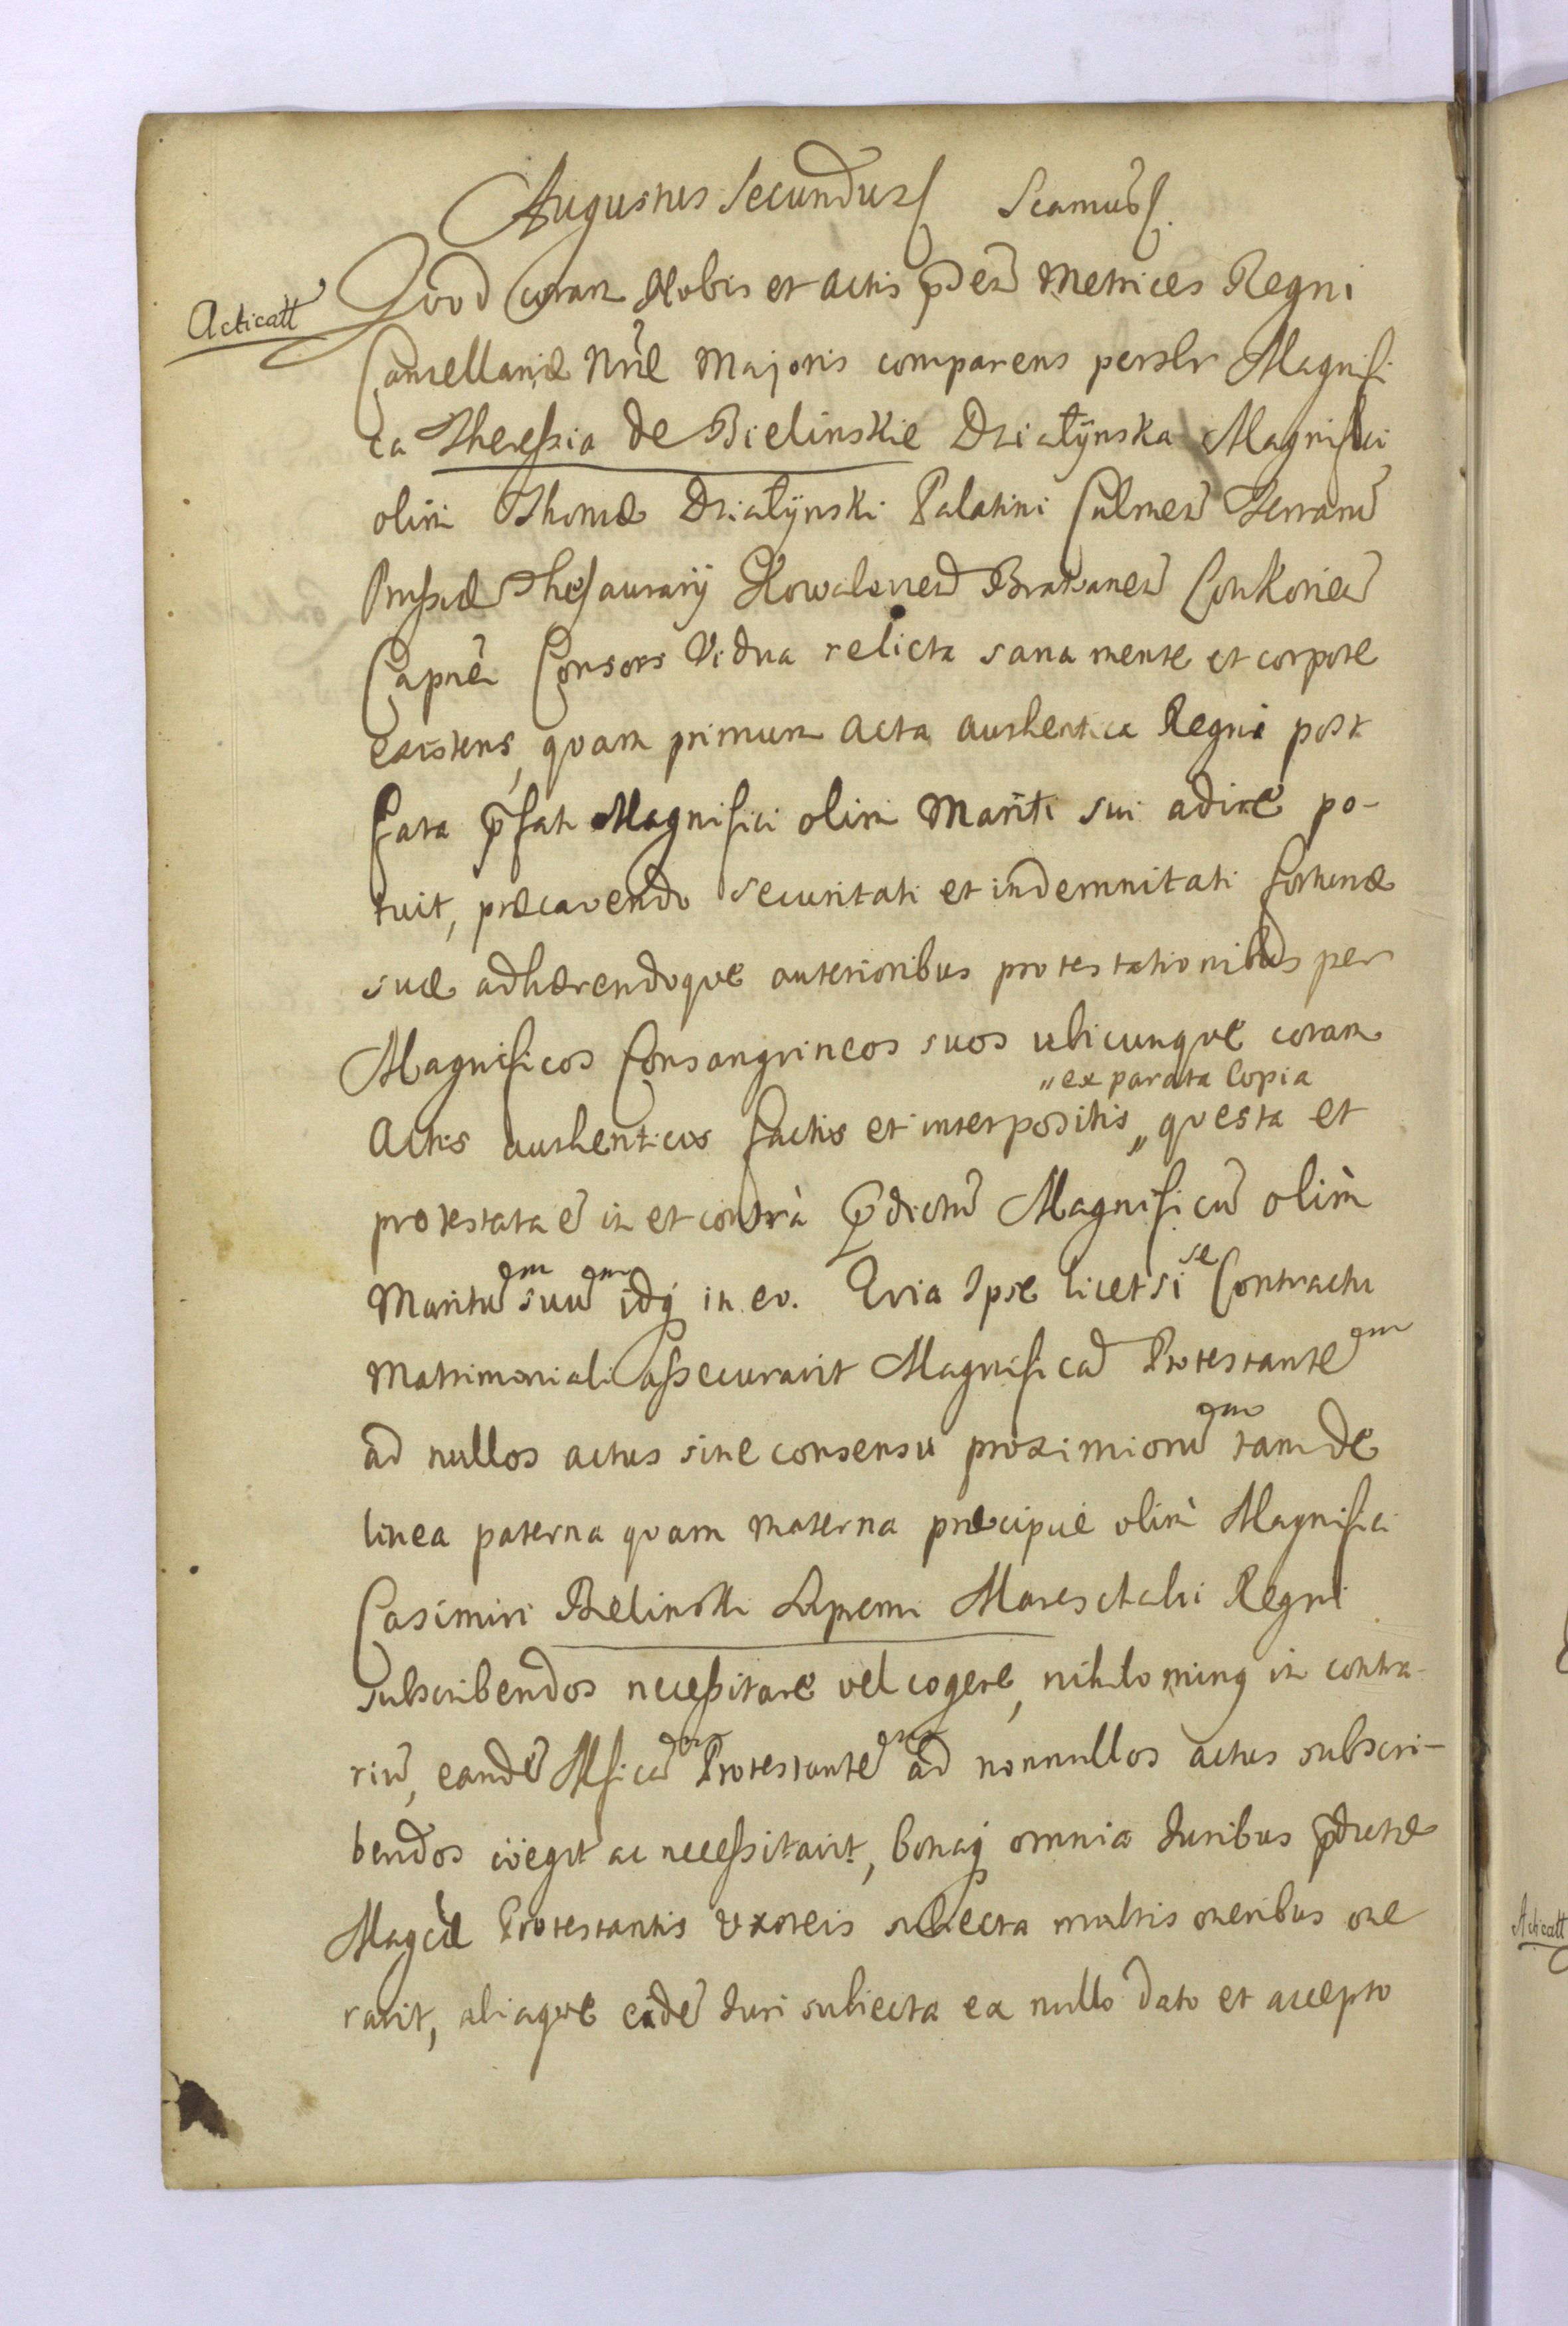 Augustus Secundus Scamus
Acticatt
Quod coram Nobis et actis p̃des Metrices Regni
Cancellariæ Nr̃æ Majoris comparens persler Magnifi
ca Theressia de Bielinskie Działÿnska Magnifici
olim Thomæ Działÿnski Palatini Culmeñ Terrarũ
Prussiæ Thesaurarÿ Kowaleneñ Bratianeñ
Capnei Consors Vidua relicta sana mente et corpore
existens, quam primum acta authentica Regni post
fata p̃fati Magnifici olim Mariti sui adire po-
tuit, præcavendo securitati et indemnitati fortunæ
suæ adhærendoque anterioribus protestationibus per
Magnificos Consanguineos suos ubicunque coram
„ex parata Copia
Actis authenticis factis et interpositis „ questa et
protestata ẽ in et contrà p̃dictũ Magnificũ olim̀
Maritũ em suũ em idq̃ in eo. Qvia Ipse licet si se Contractu
Matrimoniali assecuravit Magnificã Protestantẽ em
ad nullos actus sine consensu proximiorũ em tam de
linea paterna quam materna præcipuè olim̀ Magnifici
Casimiri Bielinski Supremi Mareschalci Regni
subscribendos necessitare vel cogere, nihilominq in contra-
riũ, eandẽ Mficã Protestantẽ em ad nonnullos actus subscri-
bendos cöegit ac necessitavit, bonaq̃ omnia Juribus p̃dictæ
Magcæ Protestantis uxoreis subiecta multis oneribus one
ravit, aliaque eidẽ Juri subiecta ex nullo dato et accepto
Acticatt